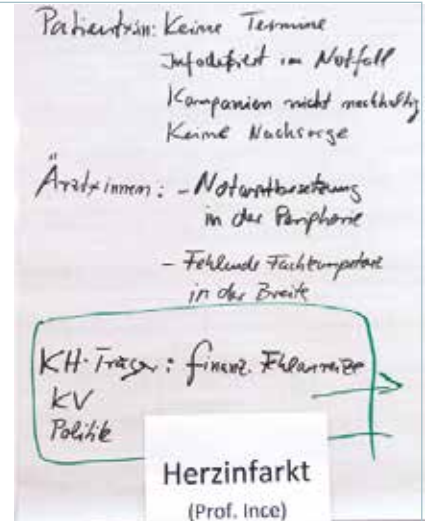 Patientxin: Keine Termine
Infodefizit im Notfall
Kampanien nicht nachhaltig
Keine Nachsorge
Ärztxinnen: - Notarztbesetzung
in der Peripherie
- Fehlende Fachkompetenz
in der Breite
KH-Träger: finanz. Fehlanreize
KV
Politik
Herzinfarkt
(Prof. Ince)